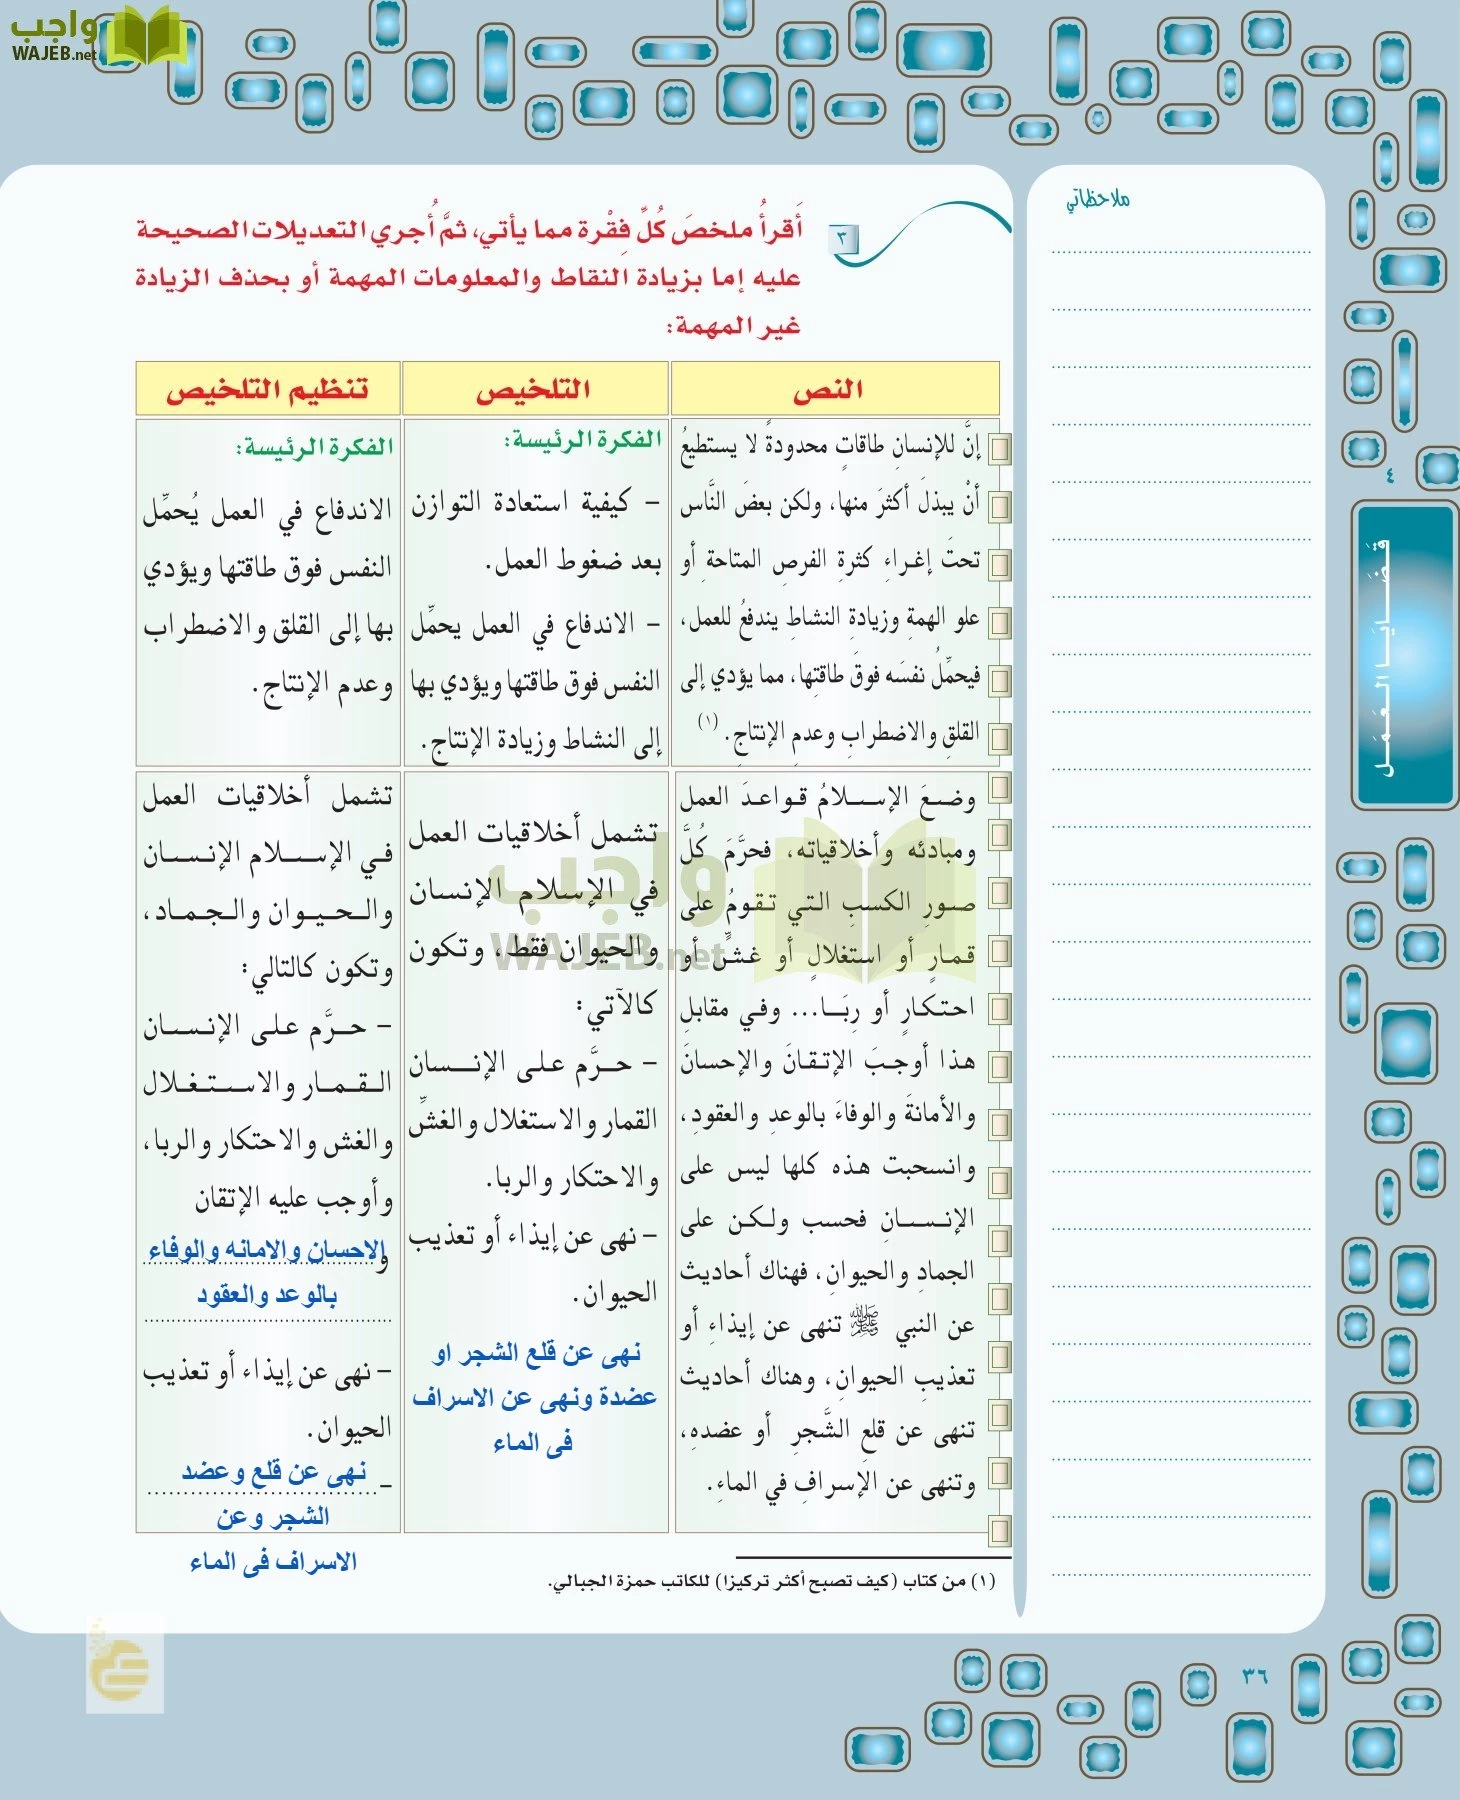 واجب
WAJEB.net
ملاحظاتي
٣
أَقرأُ ملخصَ كُلِّ فِقْرة مما يأتي، ثمَّ أُجري التعديلات الصحيحة
عليه إما بزيادة النقاط والمعلومات المهمة أو بحذف الزيادة
غير المهمة:
النص
إنَّ للإنسانِ طاقاتٍ محدودةً لا يستطيعُ
أنْ يبذلَ أكثرَ منها، ولكن بعضَ النَّاس
تحتَ إغراءِ كثرةِ الفرصِ المتاحةِ أو
علو الهمةِ وزيادةِ النشاطِ يندفعُ للعمل،
فيحمِّلُ نفسَه فوقَ طاقتِها، مما يؤدي إلى
القلقِ والاضطرابِ وعدمِ الإنتاجِ. (١)
التلخيص
الفكرة الرئيسة:
- كيفية استعادة التوازن
بعد ضغوط العمل.
- الاندفاع في العمل يحمِّل
النفس فوق طاقتها ويؤدي بها
إلى النشاط وزيادة الإنتاج.
تنظيم التلخيص
الفكرة الرئيسة:
الاندفاع في العمل يُحمِّل
النفس فوق طاقتها ويؤدي
بها إلى القلق والاضطراب
وعدم الإنتاج.
وضعَ الإسلامُ قواعدَ العمل
ومبادئه وأخلاقياته، فحرَّمَ كُلَّ
صورِ الكسبِ التي تقومُ على
قمارٍ أو استغلالٍ أو غشٍّ أو
احتكارٍ أو رِبَا... وفي مقابلِ
هذا أوجبَ الإتقانَ والإحسانَ
والأمانةَ والوفاءَ بالوعدِ والعقودِ،
وانسحبت هذه كلها ليس على
الإنسانِ فحسب ولكن على
الجمادِ والحيوانِ، فهناك أحاديث
عن النبي ﷺ تنهى عن إيذاءِ أو
تعذيبِ الحيوانِ، وهناك أحاديث
تنهى عن قلعِ الشَّجرِ أو عضدهِ،
وتنهى عن الإسرافِ في الماءِ.
تشمل أخلاقيات العمل
في الإسلام الإنسان
والحيوان فقط، وتكون
كالآتي:
- حرَّم على الإنسان
القمار والاستغلال والغشِّ
والاحتكار والربا.
- نهى عن إيذاء أو تعذيب
الحيوان.
نهى عن قلع الشجر او
عضدة ونهى عن الاسراف
فى الماء
تشمل أخلاقيات العمل
في الإسلام الإنسان
والحيوان والجماد،
وتكون كالتالي:
- حرَّم على الإنسان
القمار والاستغلال
والغش والاحتكار والربا،
وأوجب عليه الإتقان
والاحسان والامانه والوفاء
بالوعد والعقود
- نهى عن إيذاء أو تعذيب
الحيوان.
- نهى عن قلع وعضد
الشجر وعن
الاسراف فى الماء
واجب
WAJEB.net
(١) من كتاب (كيف تصبح أكثر تركيزا) للكاتب حمزة الجبالي.
٤
قَضَايَا الْعَمَل
٣٦